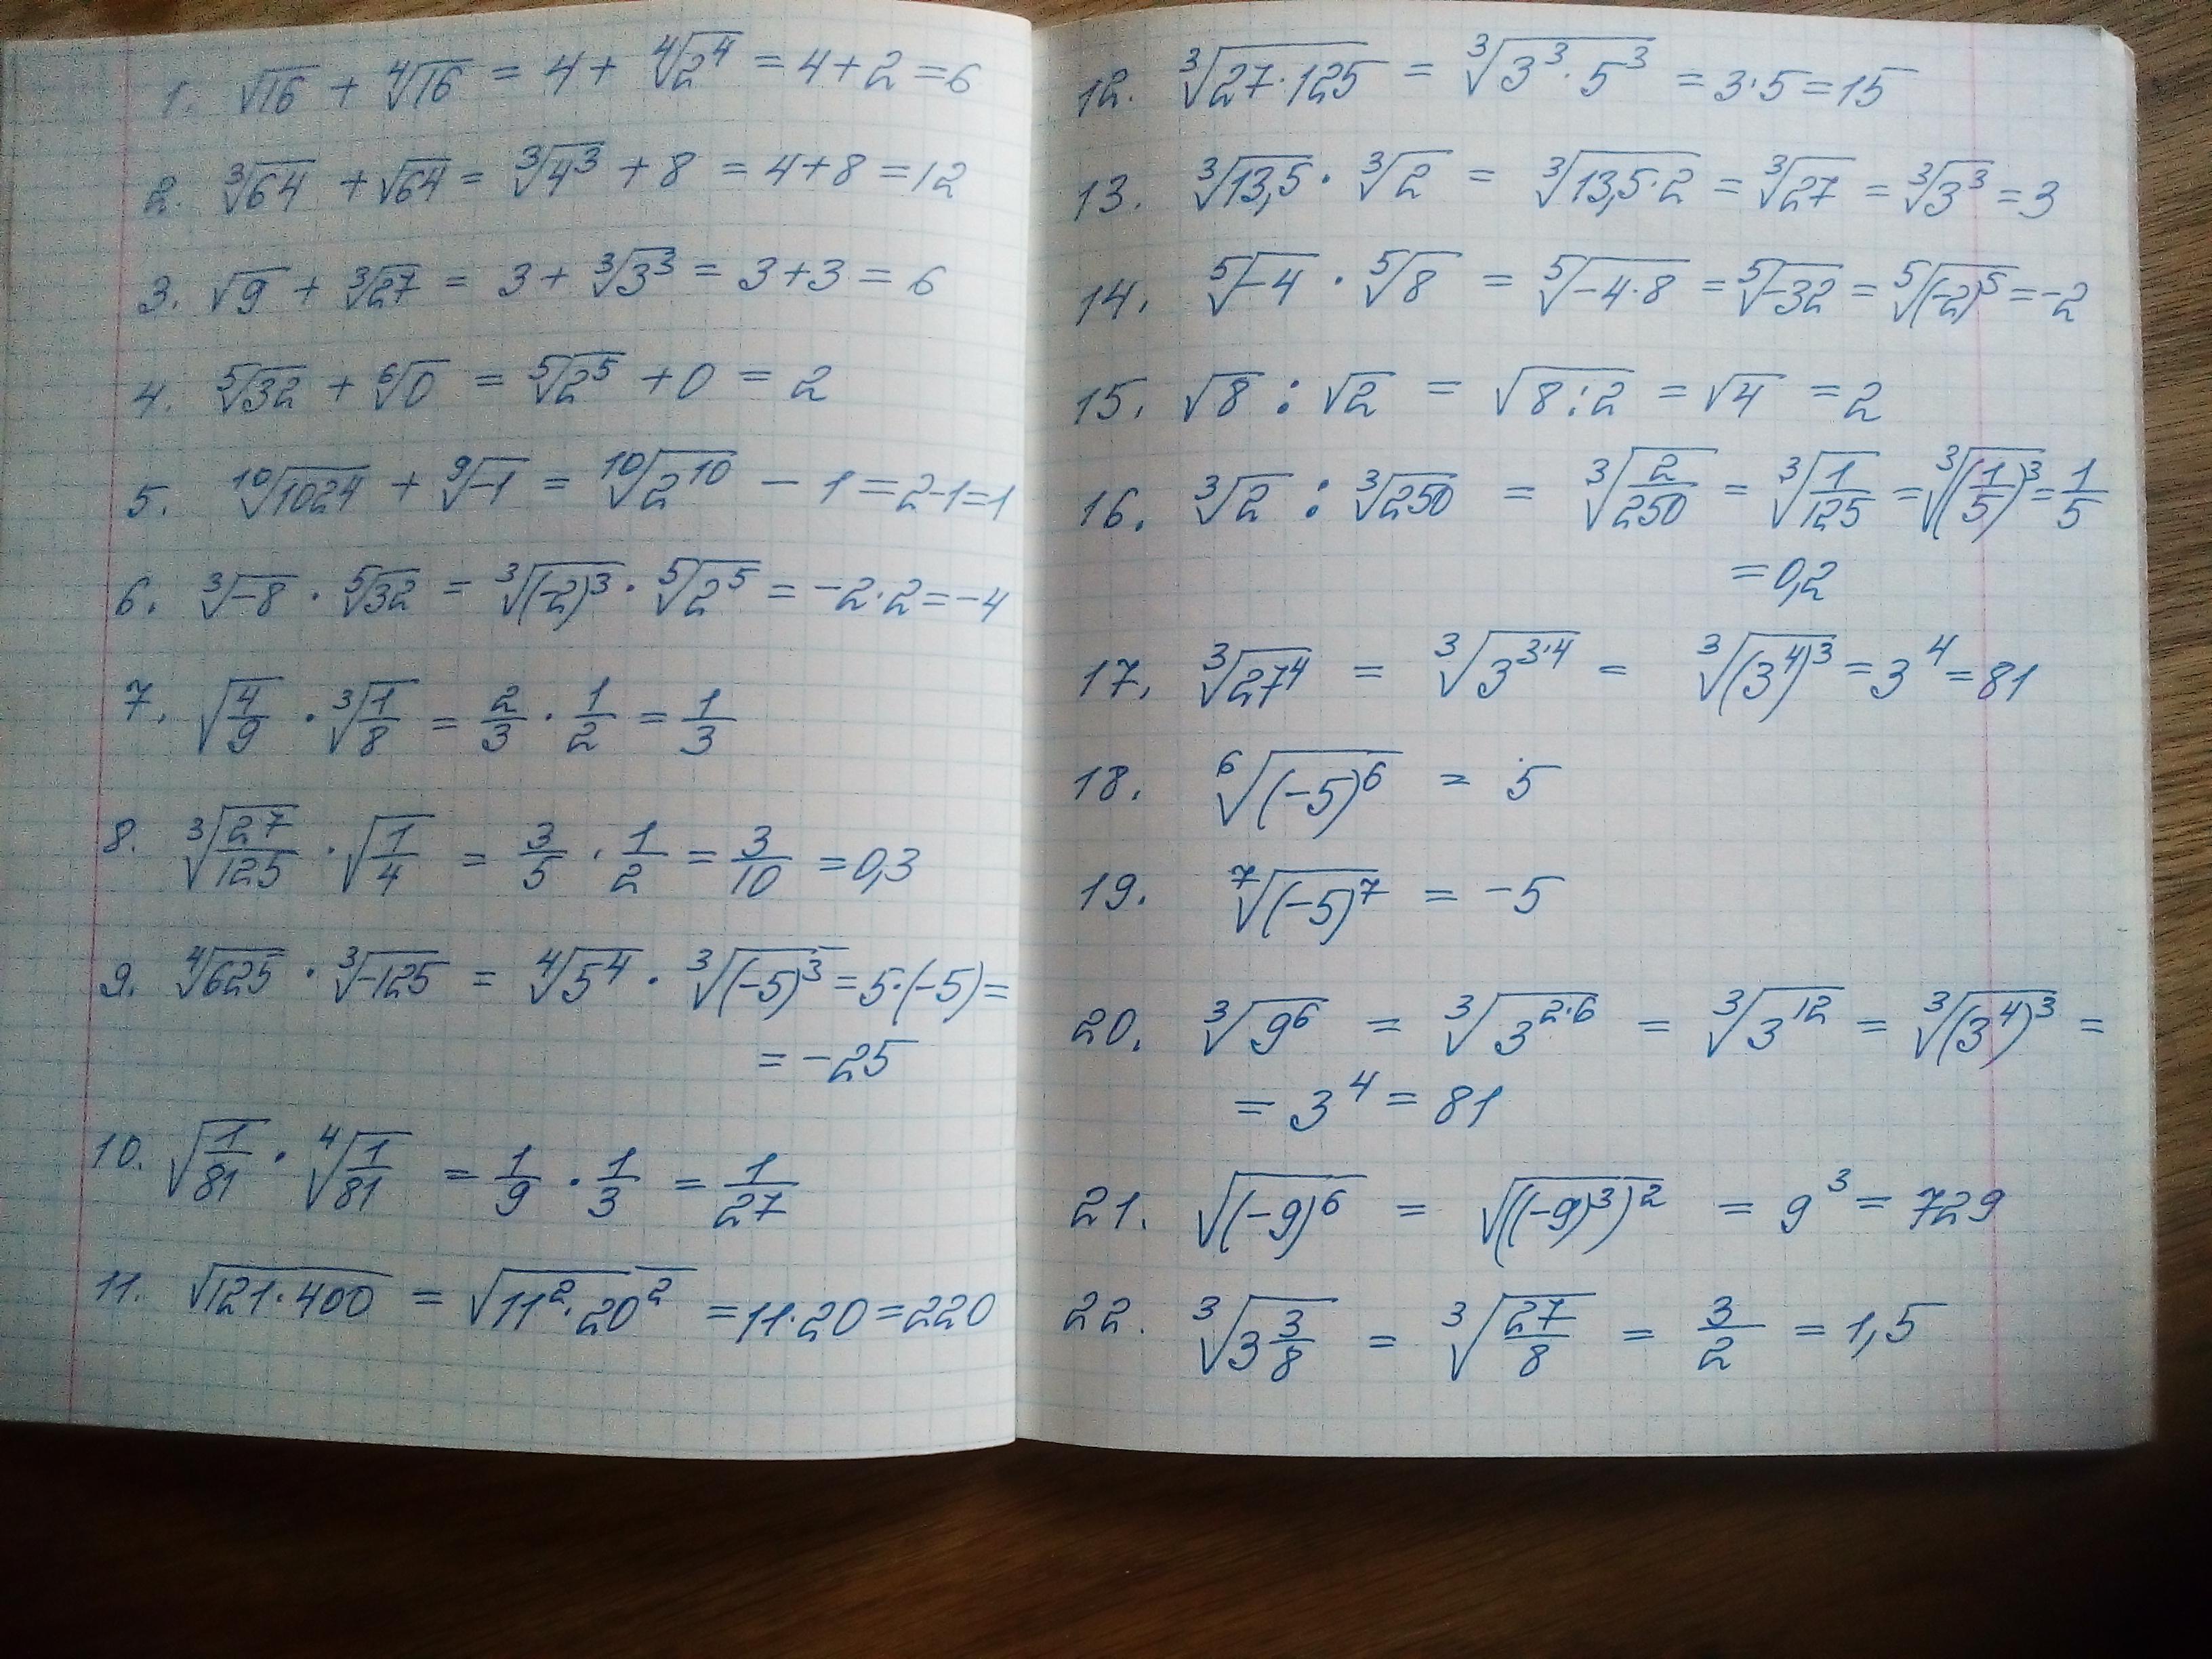 1. √16 + ⁴√16 = 4 + ⁴√2⁴ = 4+2 = 6
2. ³√64 + √64 = ³√4³ + 8 = 4+8 = 12
3. √9 + ³√27 = 3 + ³√3³ = 3+3 = 6
4. ⁵√32 + ⁶√0 = ⁵√2⁵ + 0 = 2
5. ¹⁰√1024 + ⁹√-1 = ¹⁰√2¹⁰ - 1 = 2-1 = 1
6. ³√-8 · ⁵√32 = ³√(-2)³ · ⁵√2⁵ = -2·2 = -4
7. √(4/9) · ³√(1/8) = 2/3 · 1/2 = 1/3
8. ³√(27/125) · √(1/4) = 3/5 · 1/2 = 3/10 = 0,3
9. ⁴√625 · ³√-125 = ⁴√5⁴ · ³√(-5)³ = 5·(-5) =
= -25
10. √(1/81) · ⁴√(1/81) = 1/9 · 1/3 = 1/27
11. √(121·400) = √(11²·20²) = 11·20 = 220
12. ³√(27·125) = ³√(3³·5³) = 3·5 = 15
13. ³√13,5 · ³√2 = ³√(13,5·2) = ³√27 = ³√3³ = 3
14. ⁵√-4 · ⁵√8 = ⁵√(-4·8) = ⁵√-32 = ⁵√(-2)⁵ = -2
15. √8 : √2 = √(8:2) = √4 = 2
16. ³√2 : ³√250 = ³√(2/250) = ³√(1/125) = ³√(1/5)³ = 1/5
= 0,2
17. ³√27⁴ = ³√3³·⁴ = ³√(3⁴)³ = 3⁴ = 81
18. ⁶√(-5)⁶ = 5
19. ⁷√(-5)⁷ = -5
20. ³√9⁶ = ³√3²·⁶ = ³√3¹² = ³√(3⁴)³ =
= 3⁴ = 81
21. √(-9)⁶ = √((-9)³)² = 9³ = 729
22. ³√(3 3/8) = ³√(27/8) = 3/2 = 1,5